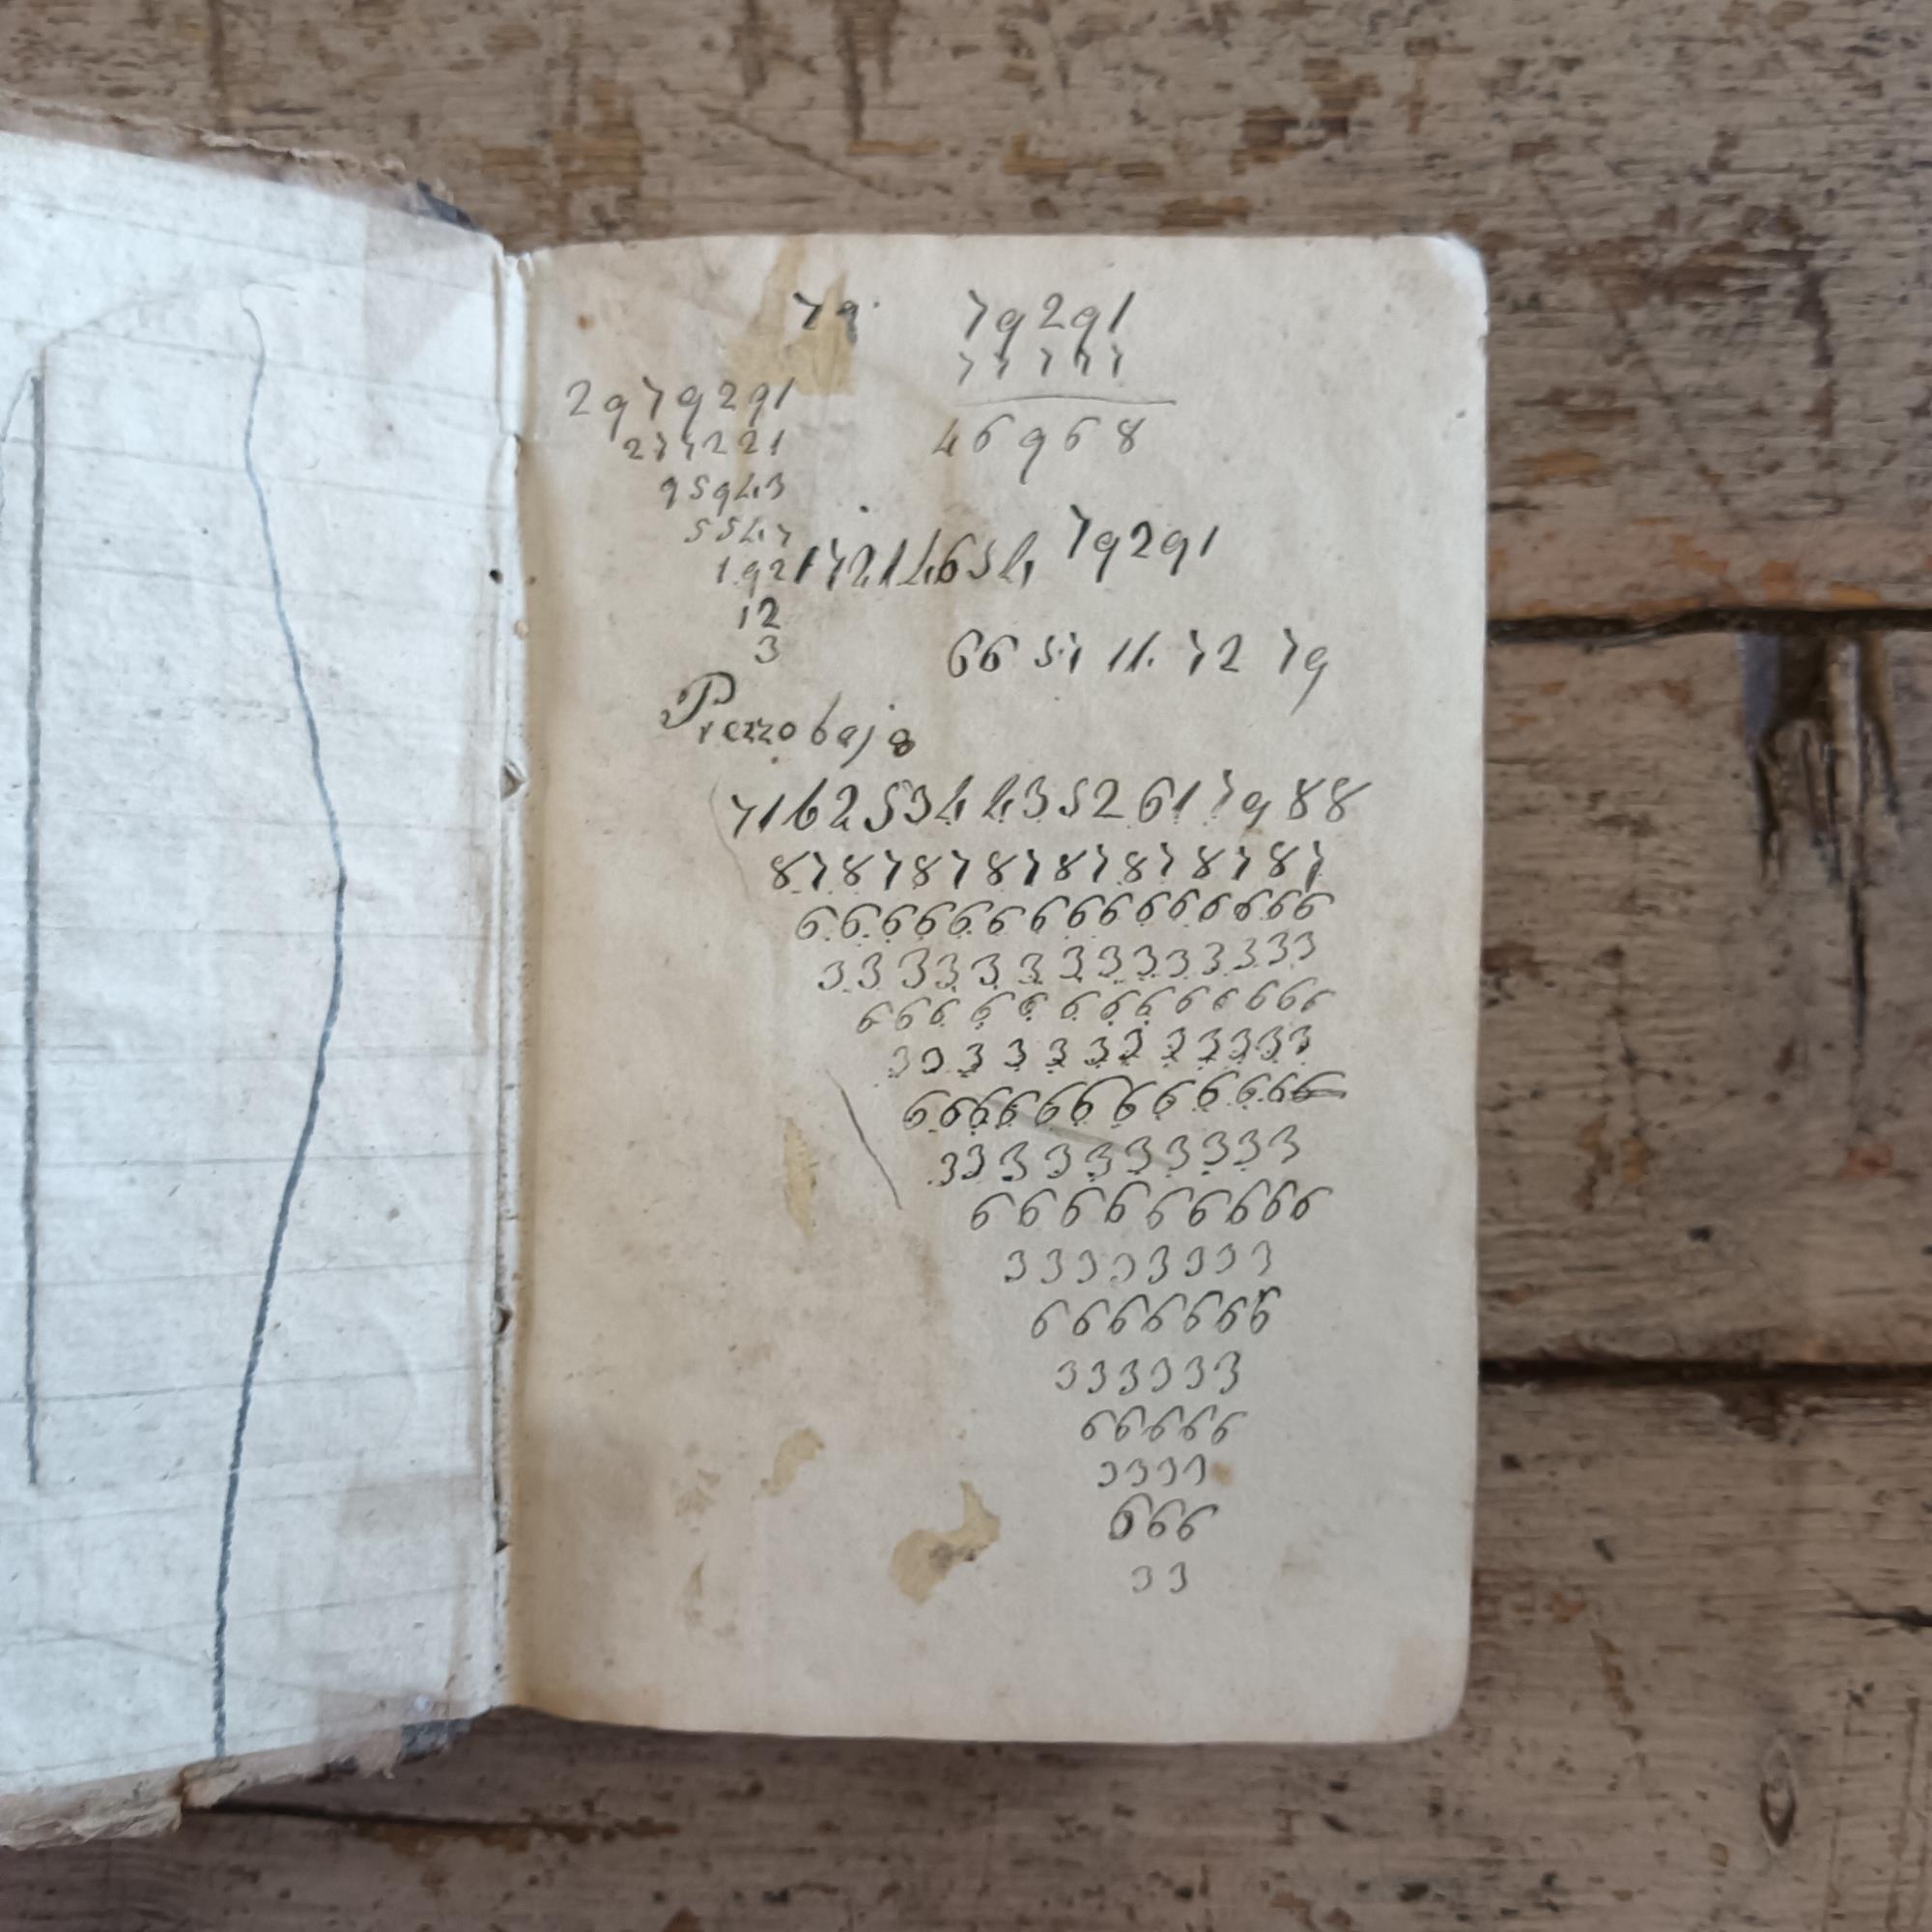 79 79291
77777
46968
2979291
277221
95943
5547
192
12
3
17214654 79291
66 57 11. 72 79
Prezzo bajo
71625344352617988
8787878787878787
666666666666666
33333333333333
6666666666666
333333333333
66666666666
3333333333
666666666
33333333
6666666
333333
66666
3333
666
33